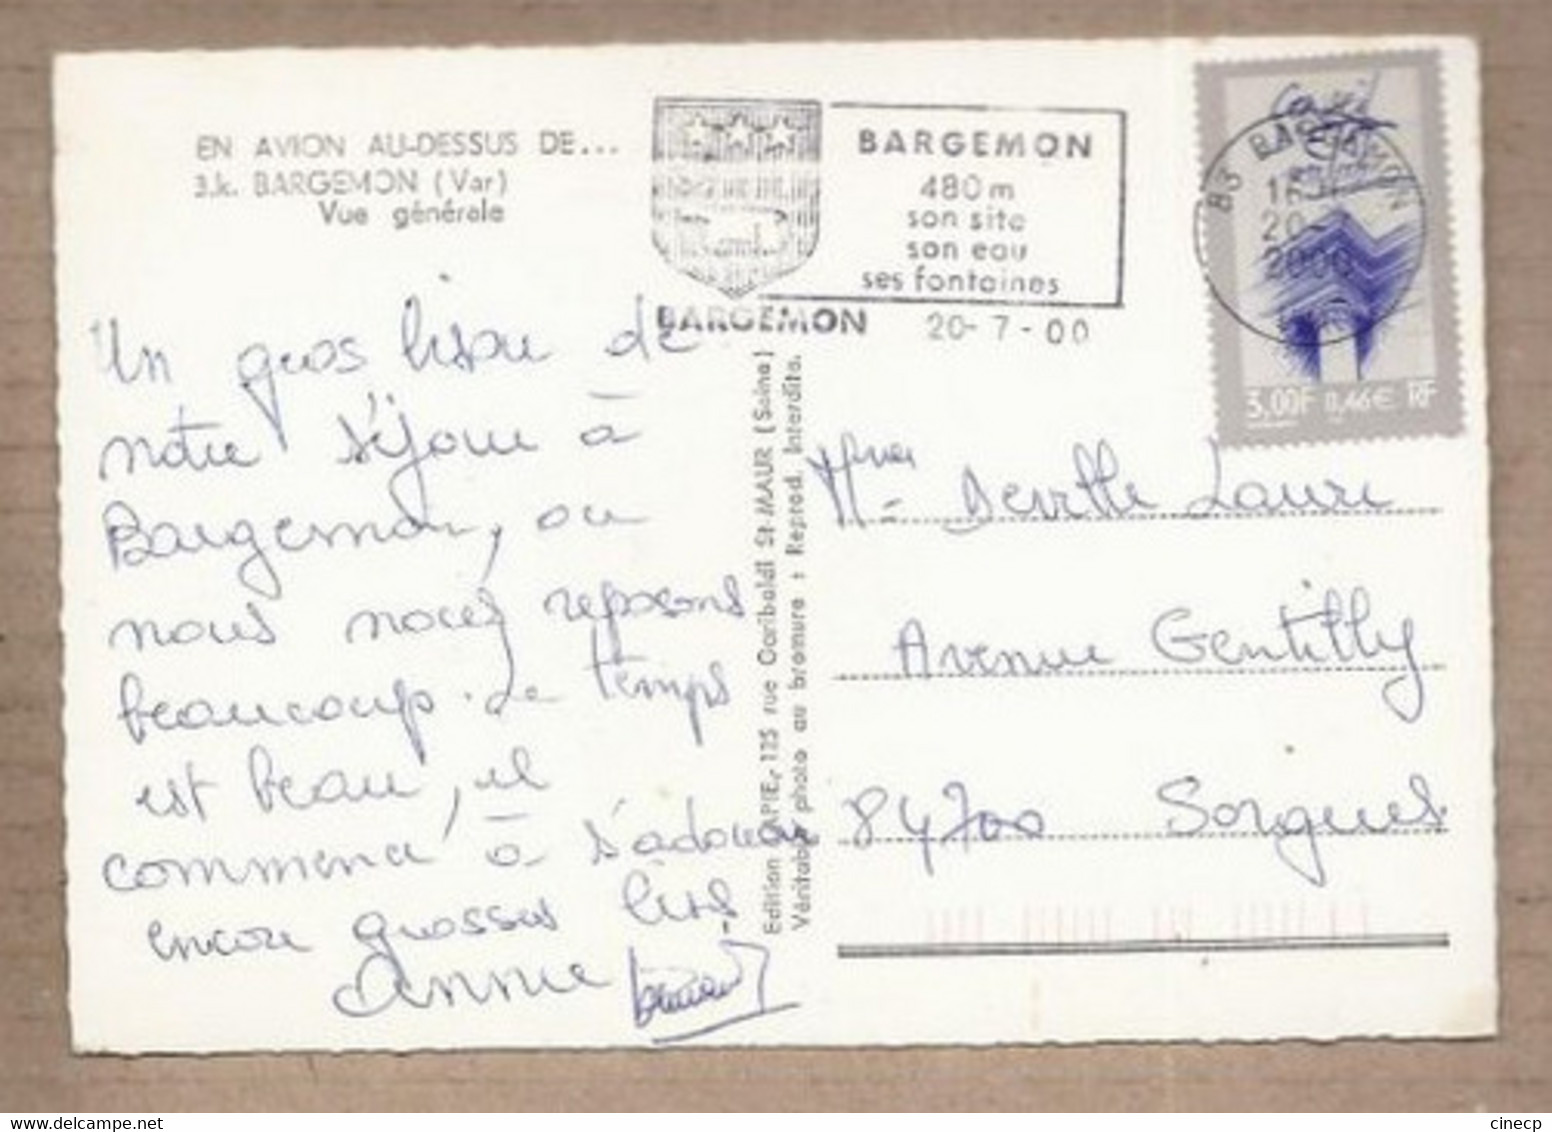 EN AVION AU-DESSUS DE...
3.k. BARGEMON (Var)
Vue générale
BARGEMON
480 m
son site
son eau
ses fontaines
BARGEMON
20-7-00
83 BARGEMON
20-
2000
3,00F 0,46€ RF
Un gros bisou de
notre séjour à
Bargemon, ou
nous nous reposons
beaucoup. Le temps
est beau, il
commence à s'adoucir
encore grosses bises
Annie
Edition LAPIE, 125 rue Garibaldi St-MAUR (Seine)
Véritable photo au bromure : Reprod. Interdite.
Deville Laure
Avenue Gentilly
84700 Sorgues
cinecp